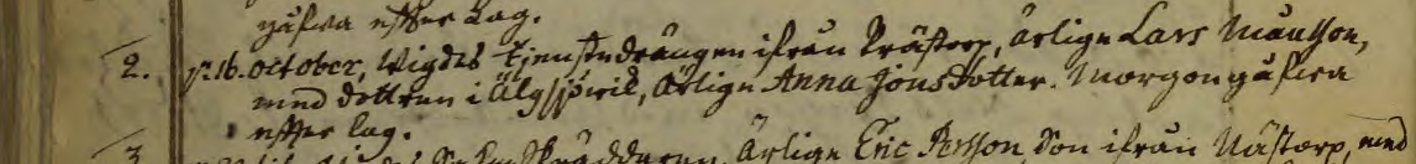 gåfwa efter Lag.
2. d. 16. October, Wigdes Tjenstedrängen ifrån Prästorp, ärlige Lars Månsson,
med dottren i Älgsjöwik, Ärliga Anna Jonsdotter. Morgongåfwa
efter lag.
3. Ärlige Eric Persson Son ifrån Nästorp, med